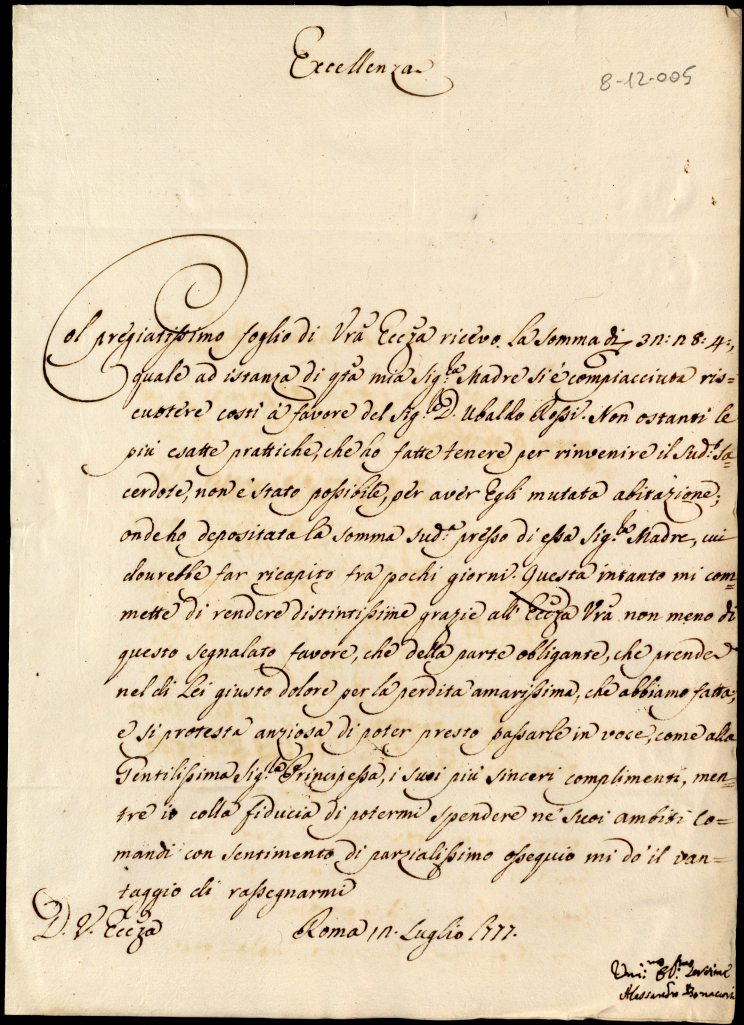 Eccellenza
8-12-005
Col pregiatissimo foglio di Vrã Eccza ricevo la somma di
quale ad istanza di qtã mia Sig.ra Madre si é compiacciuta ris=
cuotere costi á favore del Sig.r D. Ubaldo Rossi. Non ostanti le
più esatte prattiche, che ho fatte tenere per rinvenire il Sud.o Sa=
cerdote, non é stato possibile, per aver Egli mutata abitazione;
onde ho depositata la somma sud.a presso di essa Sig.ra Madre, cui
dovrebbe far ricapito fra pochi giorni. Questa intanto mi com=
mette di rendere distintissime grazie all'Eccza Vrã non meno di
questo segnalato favore, che della parte obligante, che prende
nel di Lei giusto dolore per la perdita amarissima, che abbiamo fatta;
e si protesta anziosa di poter presto passarle in voce, come alla
Gentilissima Sig.ra Principessa, i suoi più sinceri complimenti, men=
tre io colla fiducia di potermi spendere ne' suoi ambiti Co=
mandi con sentimento di parzialissimo ossequio mi do' il van=
taggio di rassegnarmi
D. V. Eccza Roma Luglio 1777.
Alessandro Bonacorsi